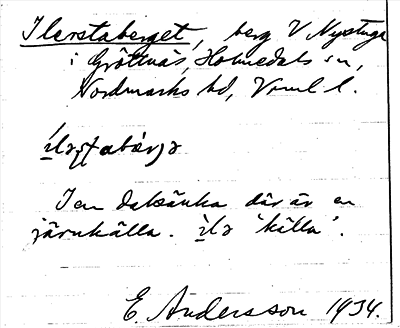 Ilerstaberget, berg V Nystuga
i Gröttnäs, Holmedals sn,
Nordmarks hd, Vrml. l.
I en dalsänka där är en
järnkälla. ìlə 'källa'.
E. Andersson 1934.